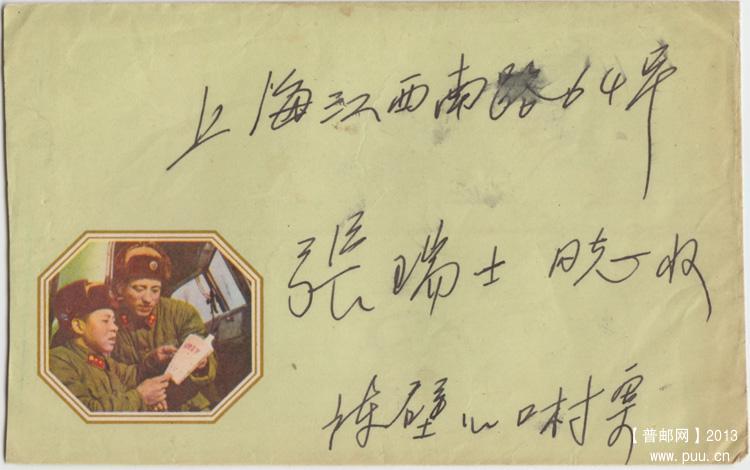 上海江西南路64弄
张瑞士同志收
【普邮网】2013
www.puu.cn